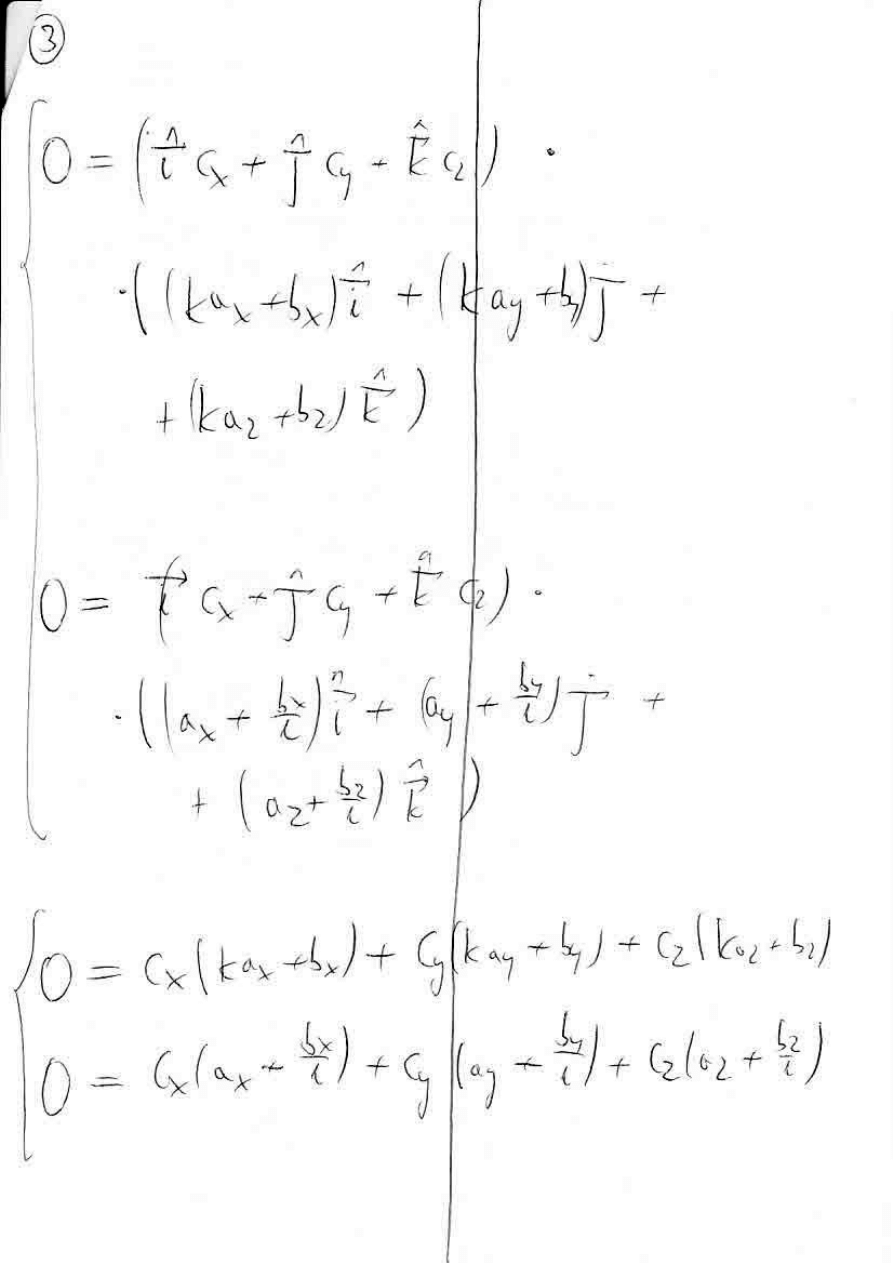 ③
0 = (î c_x + ĵ c_y + k̂ c_z) ·
·((ka_x + b_x) î + (ka_y + b_y) j +
+ (ka_z + b_z) k̂)
0 = (i c_x + ĵ c_y + k̂ c_z) ·
·((a_x + b_x/l) î + (a_y + b_y/l) j +
+ (a_z + b_z/l) k̂)
0 = c_x(ka_x + b_x) + c_y(ka_y + b_y) + c_z(ka_z + b_z)
0 = c_x(a_x + b_x/l) + c_y(a_y + b_y/l) + c_z(a_z + b_z/l)